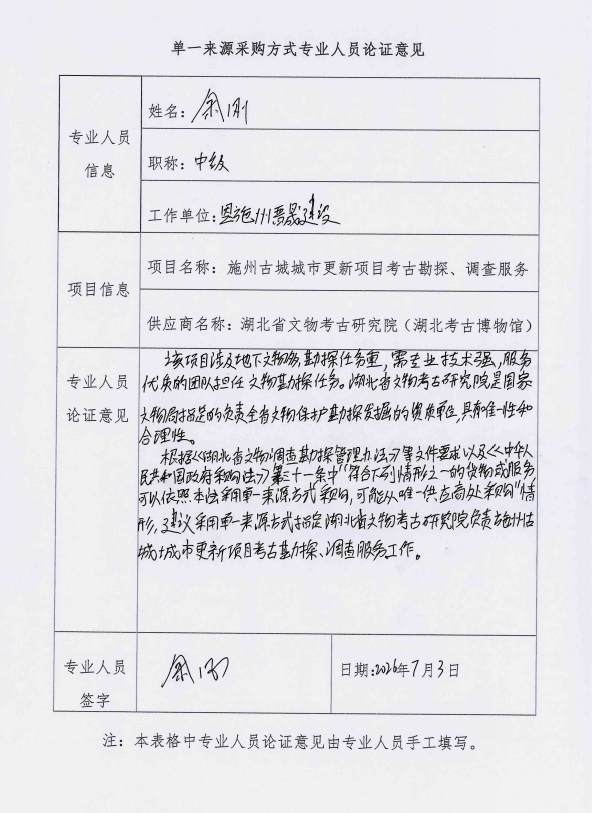 单一来源采购方式专业人员论证意见
专业人员
信息
姓名：余刚
职称：中级
工作单位：恩施州晋晟建设
项目信息
项目名称：施州古城城市更新项目考古勘探、调查服务
供应商名称：湖北省文物考古研究院（湖北考古博物馆）
专业人员
论证意见
该项目涉及地下文物多,勘探任务重,需专业技术强,服务
优质的团队担任文物勘探任务。湖北省文物考古研究院是国家
文物局指定的负责全省文物保护勘探发掘的资质单位,具有唯一性和
合理性。
根据《湖北省文物调查勘探管理办法》等文件要求以及《中华人
民共和国政府采购法》第三十一条中“符合下列情形之一的货物或服务
可以依照本法采用单一来源方式采购,可能从唯一供应商处采购”情
形,建议采用单一来源方式指定湖北省文物考古研究院负责施州古
城城市更新项目考古勘探、调查服务工作。
专业人员
签字
余刚
日期:2026年7月3日
注：本表格中专业人员论证意见由专业人员手工填写。